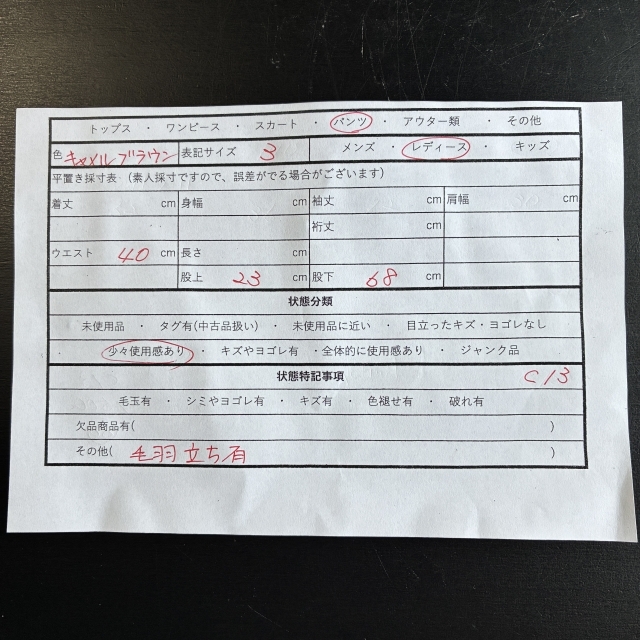 トップス ・ ワンピース ・ スカート ・ パンツ ・ アウター類 ・ その他
色 キャメルブラウン 表記サイズ 3 メンズ ・ レディース ・ キッズ
平置き採寸表（素人採寸ですので、誤差がでる場合がございます）
着丈 cm 身幅 cm 袖丈 cm 肩幅 cm
裄丈 cm
ウエスト 40 cm 長さ cm
股上 23 cm 股下 68 cm
状態分類
未使用品 ・ タグ有(中古品扱い) ・ 未使用品に近い ・ 目立ったキズ・ヨゴレなし
・ 少々使用感あり ・ キズやヨゴレ有 ・全体的に使用感あり ・ ジャンク品
状態特記事項 C13
毛玉有 ・ シミやヨゴレ有 ・ キズ有 ・ 色褪せ有 ・ 破れ有
欠品商品有( )
その他( 毛羽立ち有 )